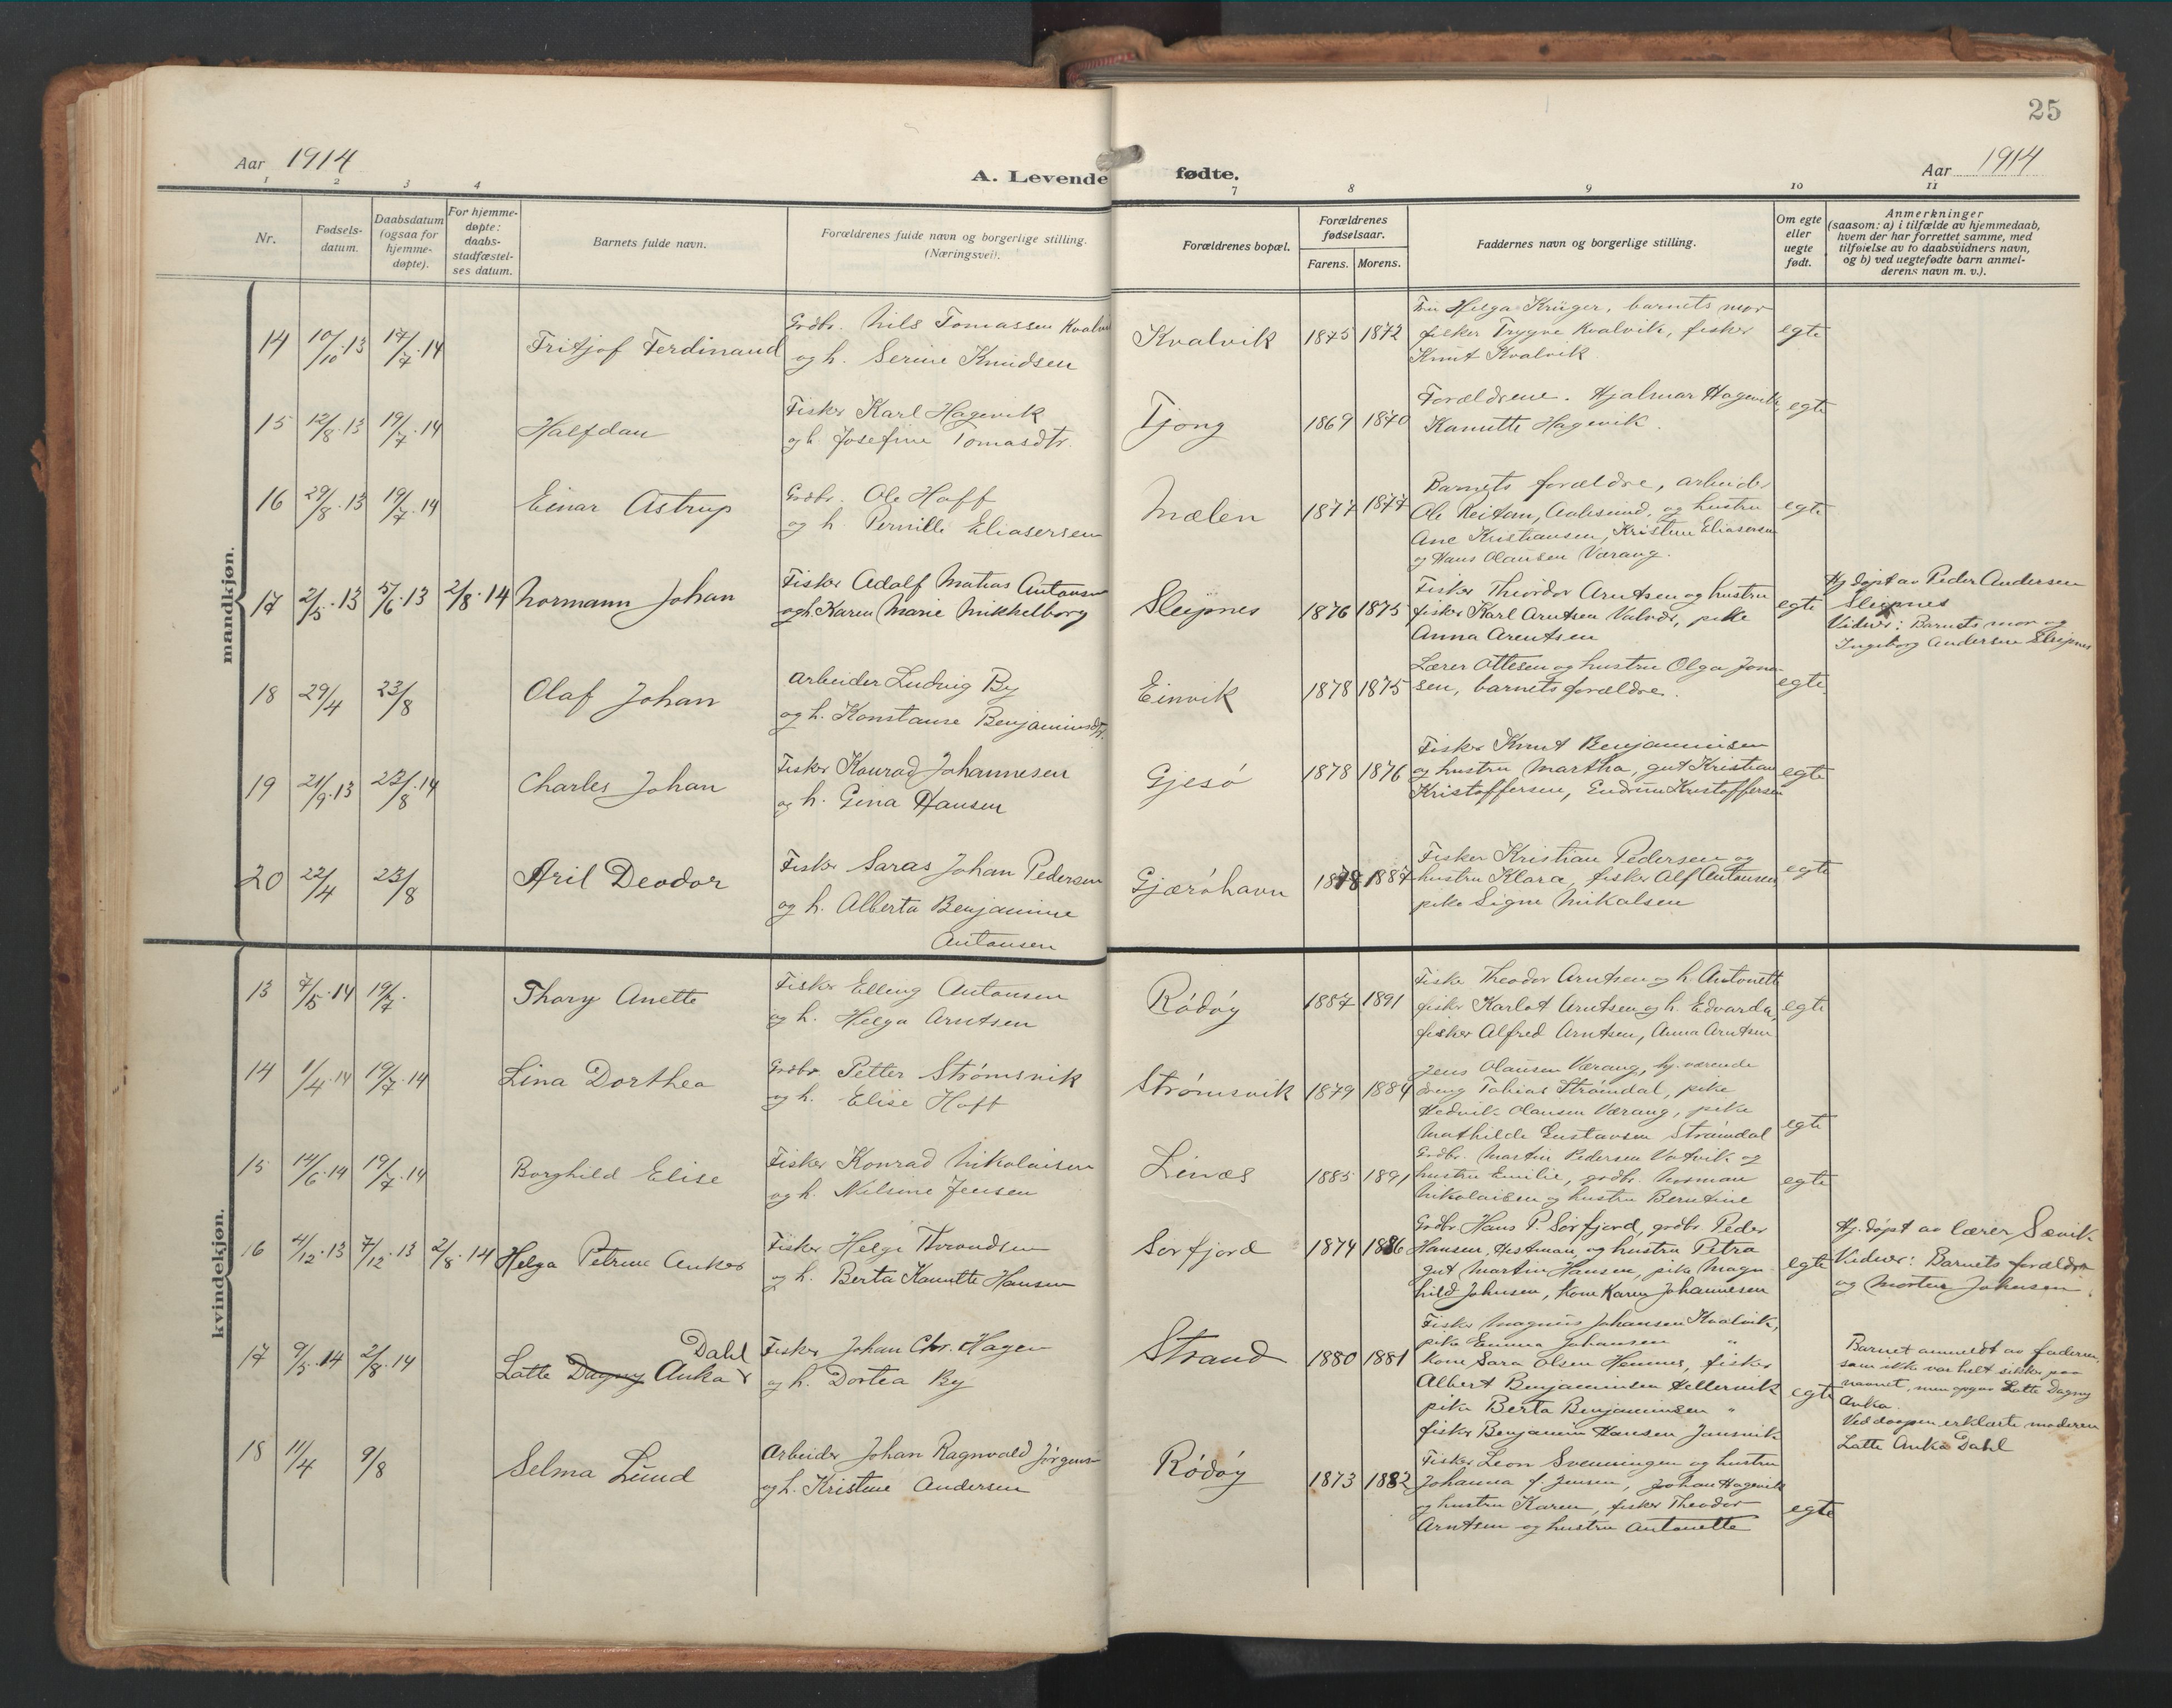 25
Aar 1914
A. Levende fødte.
Aar 1914
1 2 3 4 7 8 9 10 11
Nr.
Fødsels-
datum.
Daabsdatum
(ogsaa for
hjemme-
døpte).
For hjemme-
døpte:
daabs-
stadfæstel-
ses datum.
Barnets fulde navn.
Forældrenes fulde navn og borgerlige stilling.
(Næringsvei).
Forældrenes bopæl.
Forældrenes
fødselsaar.
Farens. Morens.
Faddernes navn og borgerlige stilling.
Om egte
eller
uegte
født.
Anmerkninger
(saasom: a) i tilfælde av hjemmedaab,
hvem der har forrettet samme, med
tilføielse av to daabsvidners navn,
og b) ved uegtefødte barn anmel-
derens navn m. v.).
mandkjøn.
14 10/10.13 17/7.14 Fritjof Ferdinand
Grdbr. Nils Tomassen Kvalvik
og h. Serine Knudsen
Kvalvik 1875 1872
Fru Helga Krüger, barnets mor
fisker Trygve Kvalvik, fisker
Knut Kvalvik
egte
15 12/8.13 19/7.14 Halfdan
Fisker Karl Hagevik
og h. Josefine Tomasdtr.
Tjong 1869 1870
Forældrene. Hjalmar Hagevik,
Kanutte Hagevik.
egte
16 29/8.13 19/7.14 Einar Astrup
Grdbr. Ole Hoff
og h. Pernille Eliasersen
Mælen 1877 1877
Barnets forældre, arbeider
Ole Reitan, Aalesund, og hustru
Ane Kristiansen, Kristine Eliasersen
og Hans Olausen Værang.
egte
17 2/5.13 5/6.13 2/8.14 Normann Johan
Fisker Adolf Matias Antonsen
og h. Karen Marie Mikkelborg
Sleipnes 1876 1875
Fisker Theodor Arntsen og hustru
fisker Karl Arntsen Valvær, pike
Anna Arentsen
egte
Hj. døpt av Peder Andersen
Sleipnes
Vidner: Barnets mor og
Ingeborg Andersen Sleipnes
18 29/4 23/8 Olaf Johan
Arbeider Ludvig By
og h. Konstanse Benjaminsdtr.
Einvik 1878 1875
Lærer Ottesen og hustru Olga Jona-
sen, barnets forældre.
egte
19 21/9.13 23/8.14 Charles Johan
Fisker Konrad Johannesen
og h. Gina Hansen
Gjesø 1878 1876
Fisker Knut Benjaminsen
og hustru Martha, gut Kristian
Kristoffersen, Gudrun Kristoffersen
egte
20 22/4 23/8 Aril Deodor
Fisker Saras Johan Pedersen
og h. Alberta Benjamine
Antonsen
Gjærøhavn 1878 1887
Fisker Kristian Pedersen og
hustru Klara, fisker Alf Antonsen,
pike Signe Mikalsen
egte
kvindekjøn.
13 7/5.14 19/7. Thory Anette
Fisker Elling Antonsen
og h. Helga Arntsen
Rødøy 1887 1891
Fisker Theodor Arntsen og h. Antonette
fisker Karlot Arntsen og h. Edvarda,
fisker Alfred Arntsen, Anna Arntsen
egte
14 1/4.14 19/7.14 Lina Dorthea
Grdbr. Petter Strømsvik
og h. Elise Hoff
Strømsvik 1879 1884
Jens Olausen Værang, hj. værende
dreng Tobias Strømdal, pike
Hedvik Olausen Værang, pike
Mathilde Gustavsen Strømdal
egte
15 14/6.14 19/7.14 Borghild Elise
Fisker Konrad Nikolaisen
og h. Nilsine Jensen
Linæs 1885 1891
Grdbr. Martin Pedersen Votvik og
hustru Emilie, grdbr. Norman
Nikolaisen og hustru Berntine
egte
16 4/12.13 7/12.13 2/8.14 Helga Petrine Anker
Fisker Helge Throndsen
og h. Berta Kanutte Hansen
Sørfjord 1874 1886
Grdbr. Hans P. Sørfjord, grdbr. Peder
Hansen, Hestman, og hustru Petra
gut Martin Hansen, pike Magn-
hild Johnsen, kone Karen Johannesen
egte
Hj. døpt av lærer Sævik
Vidner: Barnets forældre
og Morten Johnsen.
17 9/5.14 2/8.14 Lotte Dagny Anka Dahl
Fisker Johan Chr. Hagen
og h. Dortea By
Strand 1880 1881
Fisker Magnus Johansen Kvalvik,
pike Emma Johansen "
kone Sara Olsen Hemnes, fisker
Albert Benjaminsen Hellervik
pike Berta Benjaminsen "
fisker Benjamin Hansen Jansvik
egte
Barnet anmeldt av faderen,
som ikke var helt sikker paa
navnet, men opgav Lotte Dagny
Anka.
Ved daapen erklærte moderen
Lotte Anka Dahl
18 11/4 9/8 Selma Lund
Arbeider Johan Ragnvald Jørgens-
og h. Kristine Andersen
Rødøy 1873 1882
Fisker Leon Svenningen og hustru
Johanna f. Jensen, Johan Hagevik
og hustru Karen, fisker Theodor
Arntsen og hustru Antonette
egte